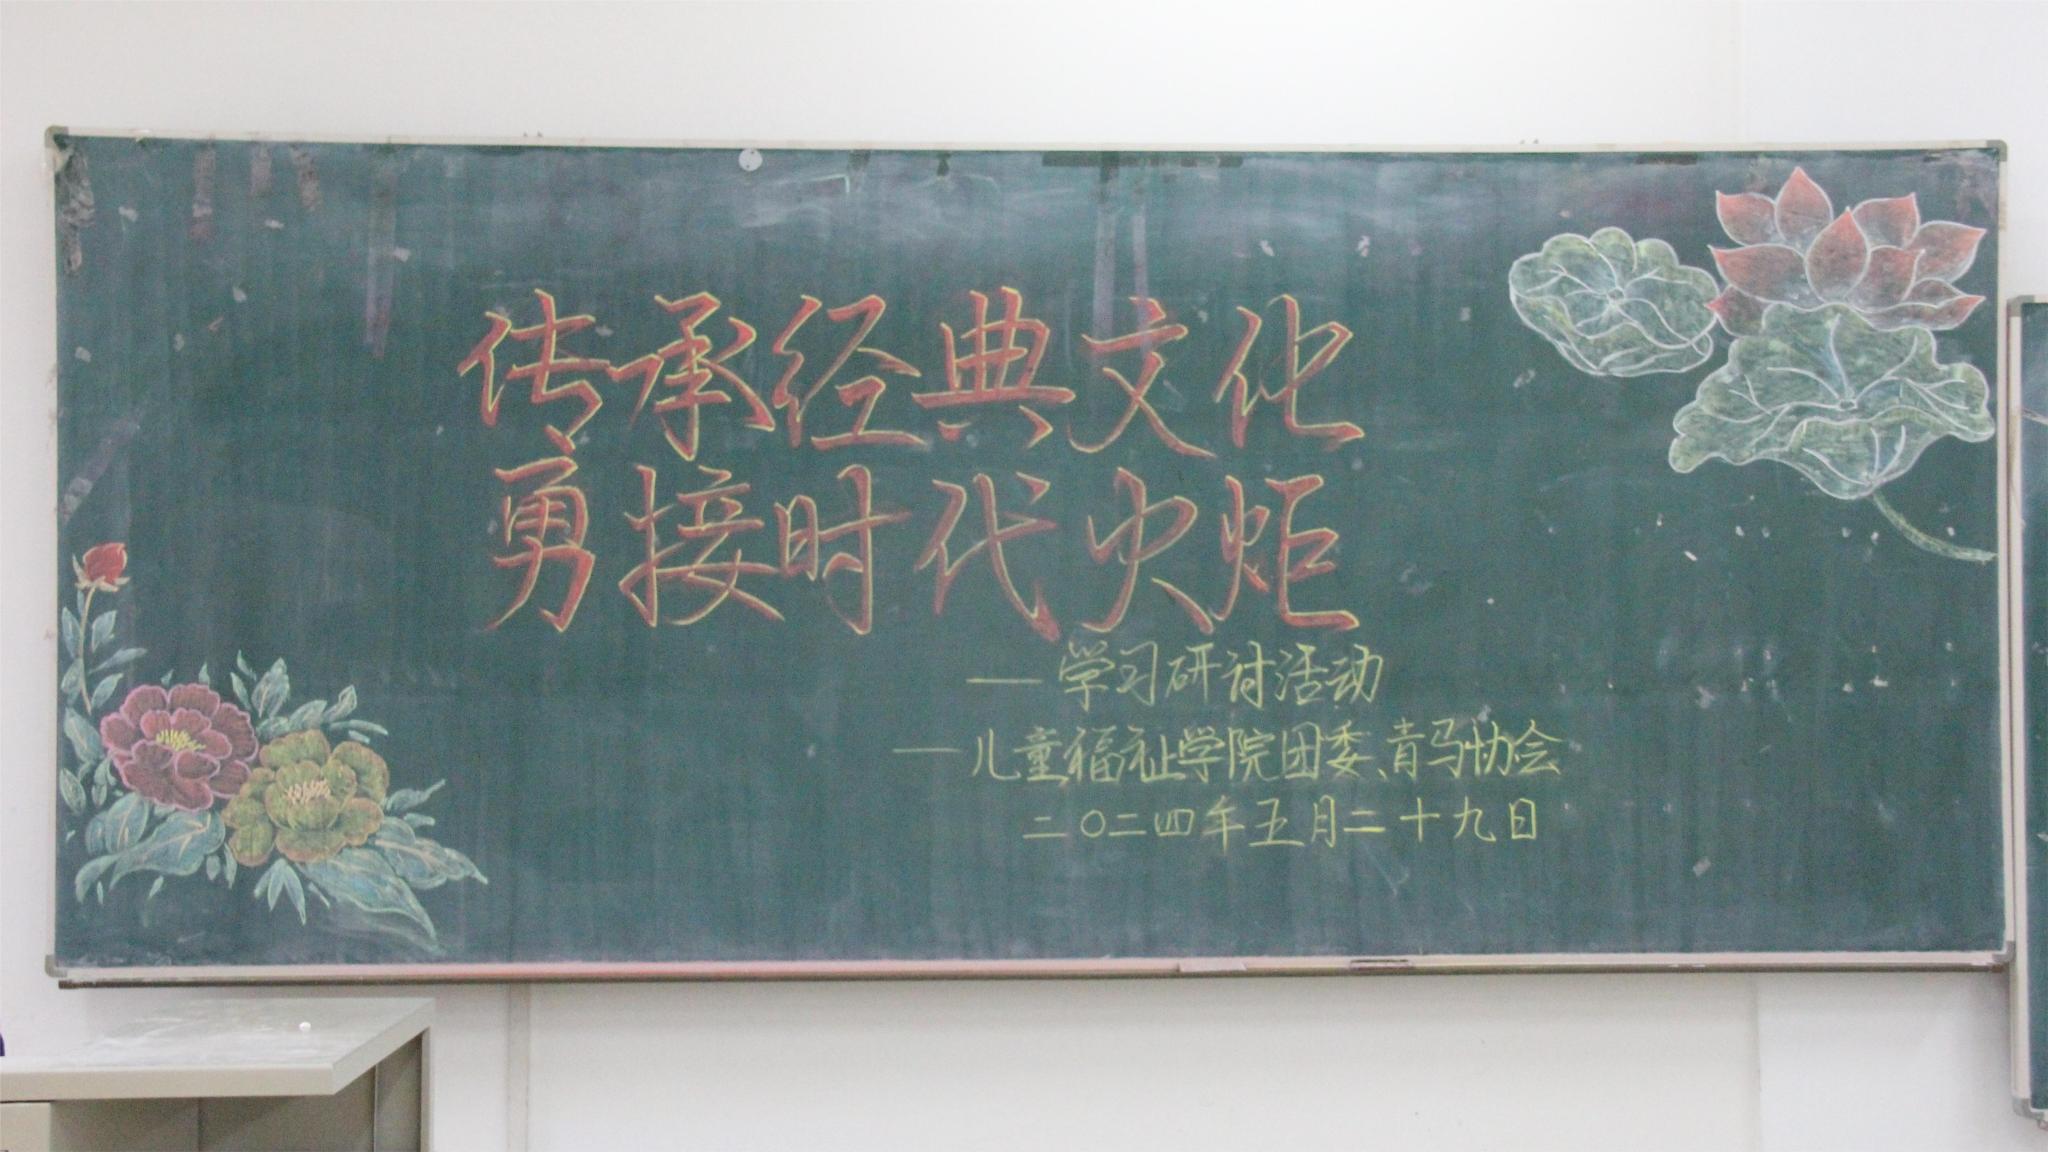 传承经典文化
勇接时代火炬
—学习研讨活动
—儿童福祉学院团委、青马协会
二〇二四年五月二十九日